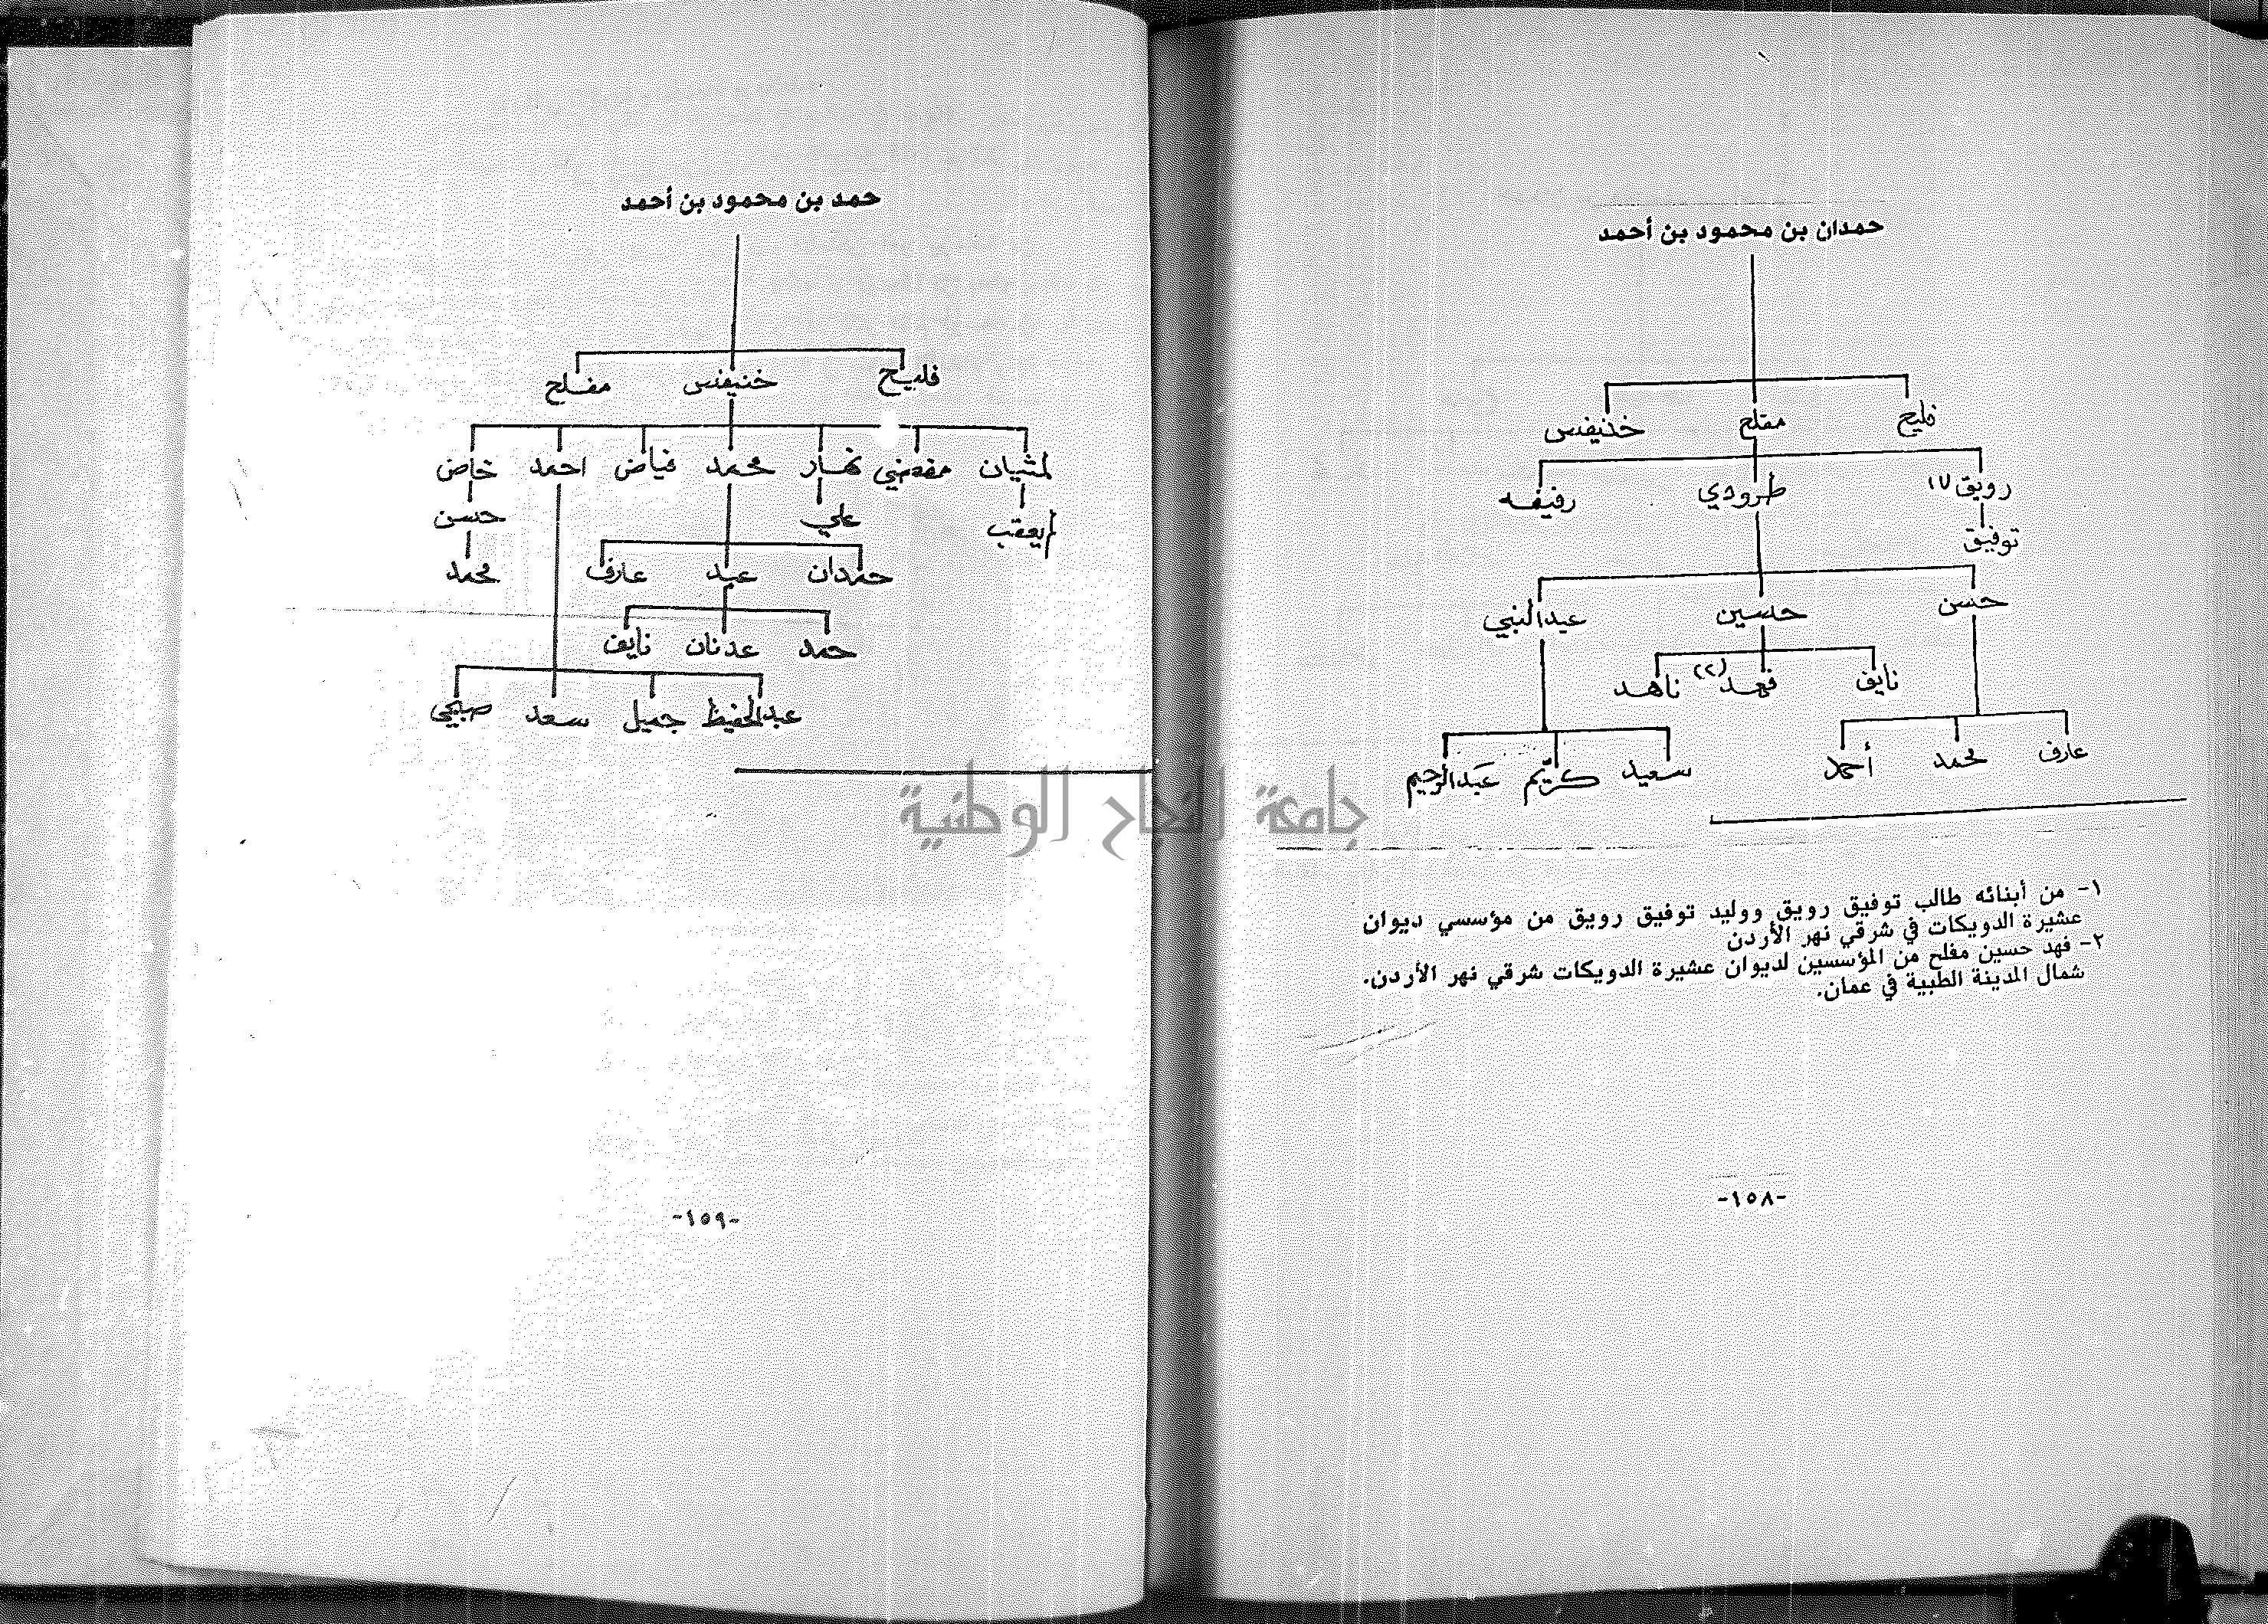 حمدان بن محمود بن أحمد
فليح مفلح خنيفس
رويق (١) طرودي رفيفه
توفيق
حسن حسين عبدالنبي
نايف فهد (٢) ناهد
عارف محمد أحمد سعيد كريم عبدالرحيم
١- من أبنائه طالب توفيق رويق ووليد توفيق رويق من مؤسسي ديوان
عشيرة الدويكات في شرقي نهر الأردن
٢- فهد حسين مفلح من المؤسسين لديوان عشيرة الدويكات شرقي نهر الأردن.
شمال المدينة الطبية في عمان.
-١٥٨-
حمد بن محمود بن أحمد
فليح خنيفس مفلح
لمثيان مفضي نهار محمد فياض احمد خاض
لم يعقب علي حسن
حمدان عبد عارف محمد
حمد عدنان نايف
عبدالحفيظ جميل سعد صبحي
-١٥٩-
جامعة النجاح الوطنية